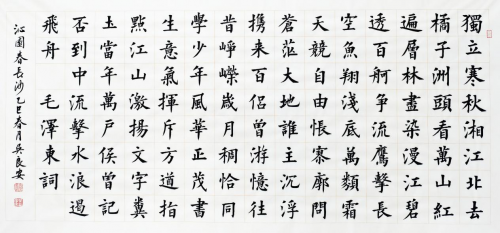 獨立寒秋湘江北去
橘子洲頭看萬山紅
遍層林盡染漫江碧
透百舸爭流鷹擊長
空魚翔淺底萬類霜
天競自由悵寥廓問
蒼茫大地誰主沉浮
携來百侶曾游憶往
昔崢嶸歲月稠恰同
學少年風華正茂書
生意氣揮斥方遒指
點江山激揚文字糞
土當年萬戶侯曾記
否到中流擊水浪遏
飛舟 毛澤東詞
沁園春長沙乙巳春月吳良安